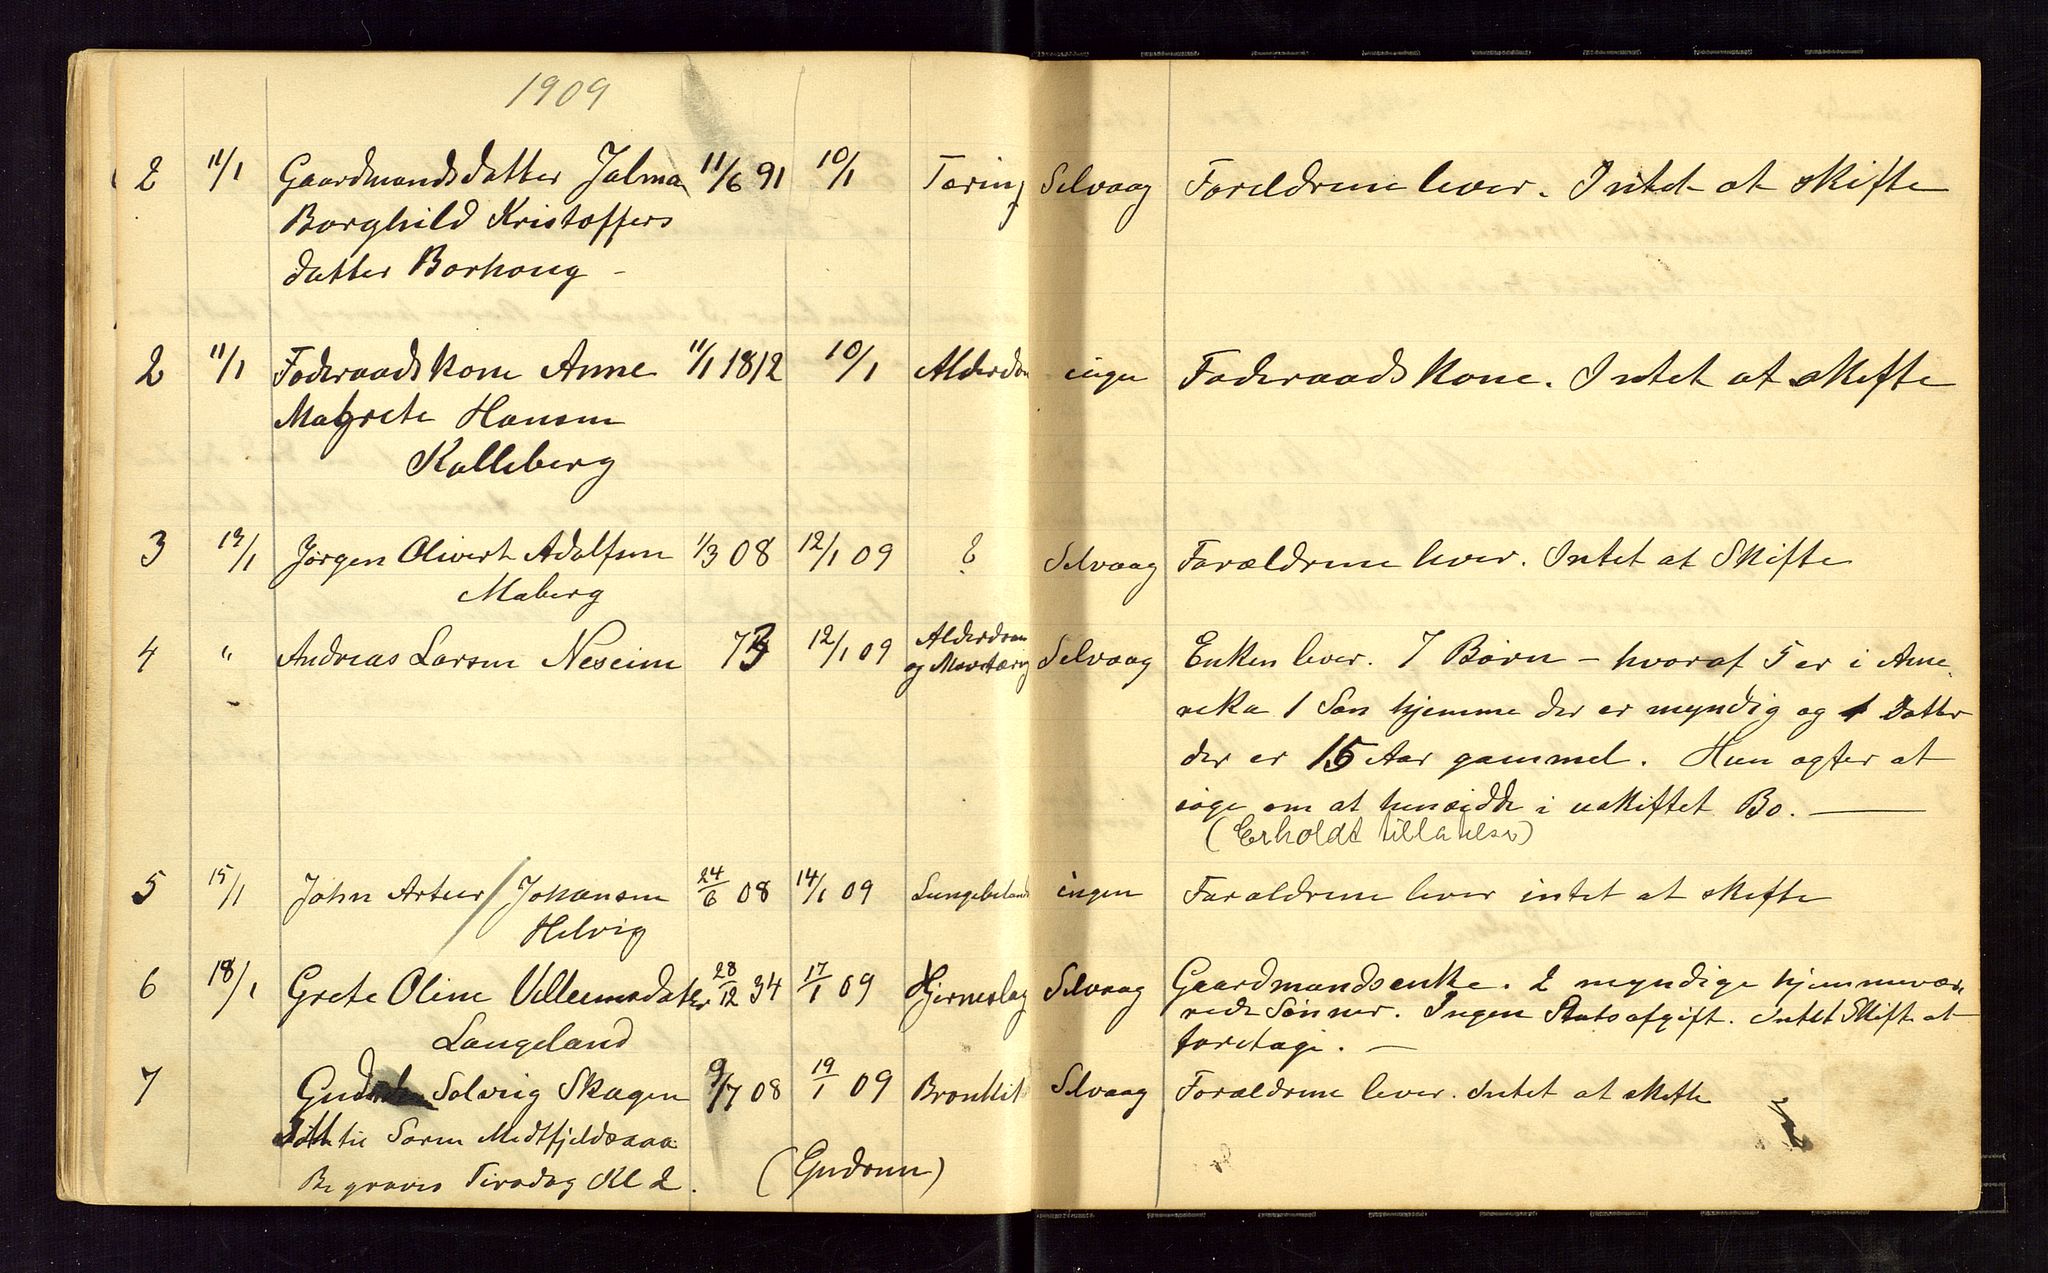 1909
2 11/1 Gaardmandsdatter Jalma 11/6 91 10/1 Tæring Selvaag Foreldrene lever. Intet at skifte
Borghild Kristoffers
datter Borhaug -
2 11/1 Foderaadskone Anne 11/1 1812 10/1 Alderdom ingen Foderaadskone. Intet at skifte
Magrete Hansen
Kalleberg
3 13/1 Jørgen Olivert Adolfsen 1/3 08 12/1 09 ? Selvaag Forældrene lever. Intet at Skifte
Maberg
4 " Andreas Larsen Neseim 73 12/1 09 Alderdom Selvaag Enken lever. 7 Børn - hvoraf 5 er i Ame-
og Mavetæring
reka 1 Søn hjemme der er myndig og 1 Datter
der er 15 Aar gammel. Hun agter at
søge om at hensidde i uskiftet Bo. -
(Erholdt tilladelse)
5 15/1 John Artur / Johansen 24/6 08 14/1 09 Lungebetændelse ingen Foraldrene lever intet at skifte
Helvig
6 18/1 Grete Oline Villumsdatter 28/12 34 17/1 09 Hjerneslag Selvaag Gaardmandsenke. 2 myndige hjemmevær-
Langeland
ende Sønner. Ingen Statsafgift. Intet Skift at
foretage. -
7 Solveig Skagen 9/7 08 19/1 09 Bronkit Selvaag Forældrene lever. Intet at skifte
Datter til Søren Midtfjeldsaaa
Begraves Tirsdag Kl 2. (Gudrun)